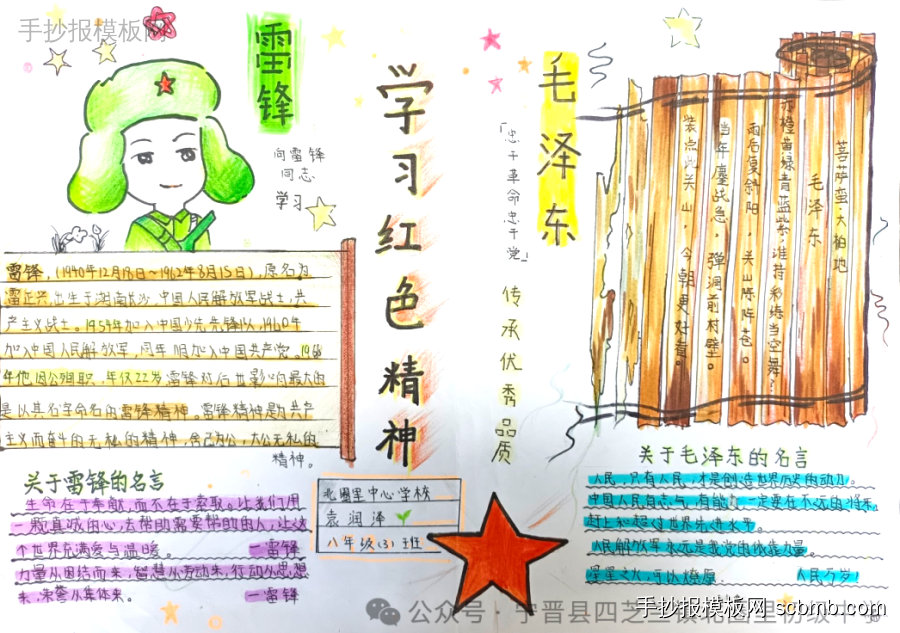 手抄报模板网
雷锋
向雷锋
同志
学习
雷锋,(1940年12月18日~1962年8月15日),原名为
雷正兴,出生于湖南长沙,中国人民解放军战士,共
产主义战士。1954年加入中国少年先锋队,1960年
加入中国人民解放军,同年11月加入中国共产党。1962
年他因公殉职,年仅22岁,雷锋对后世影响最大的
是以其名字命名的雷锋精神。雷锋精神是为共产
主义而奋斗的无私的精神,舍己为公,大公无私的
精神。
关于雷锋的名言
生命在于奉献,而不在于索取。让我们用
一颗真诚的心,去帮助需要帮助的人,让这
个世界充满爱与温暖。 一雷锋
力量从团结而来,智慧从劳动来,行动从思想
来,荣誉从集体来。 一雷锋
学习红色精神
北圈里中心学校
袁润泽
八年级(3)班
毛泽东
「忠于革命忠于党」
传承优秀品质
菩萨蛮·大柏地
毛泽东
赤橙黄绿青蓝紫,谁持彩练当空舞?
雨后复斜阳,关山阵阵苍。
当年鏖战急,弹洞前村壁。
装点此关山,今朝更好看。
关于毛泽东的名言
人民,只有人民,才是创造世界历史的动力。
中国人民有志气,有能力,一定要在不远的将来,
赶上和超过世界先进水平。
人民解放军永远是我党的依靠力量。
星星之火,可以燎原 人民万岁!
公众号·宁晋县四芝兰镇北圈里初级中学
手抄报模板网 scbmb.com